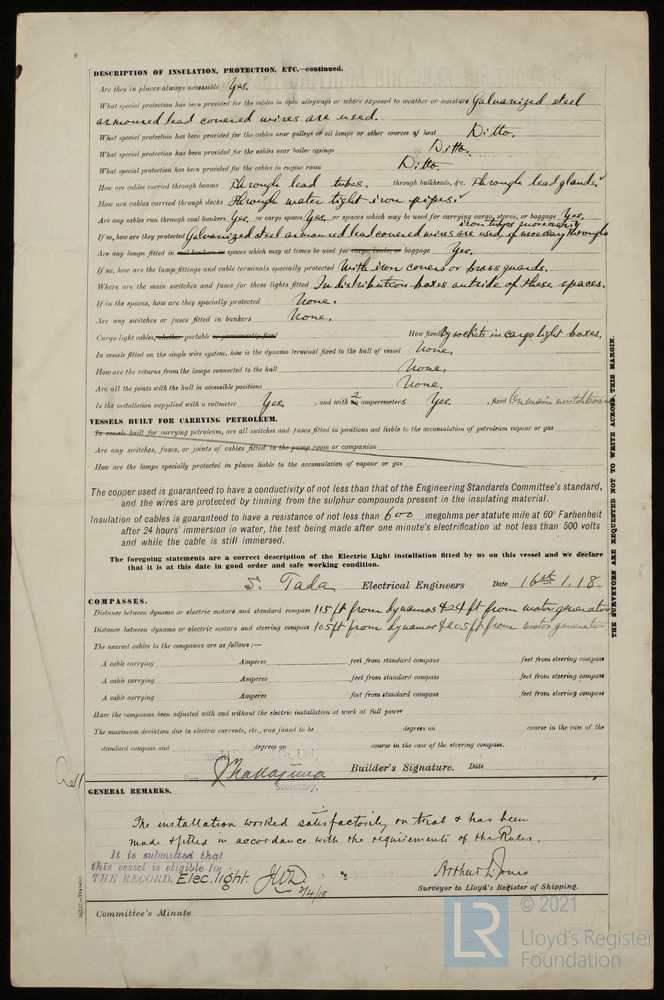 DESCRIPTION OF INSULATION, PROTECTION, ETC.—continued.
Are they in places always accessible Yes.
What special protection has been provided for the cables in open alleyways or where exposed to weather or moisture Galvanized steel
armoured lead covered wires are used.
What special protection has been provided for the cables near galleys or oil lamps or other sources of heat Ditto.
What special protection has been provided for the cables near boiler casings Ditto.
What special protection has been provided for the cables in engine room Ditto.
How are cables carried through beams Through lead tubes. through bulkheads, &c. Through lead glands.
How are cables carried through decks Through water tight iron pipes.
Are any cables run through coal bunkers Yes. or cargo spaces Yes, or spaces which may be used for carrying cargo, stores, or baggage Yes.
If so, how are they protected Galvanized steel armoured lead covered wires are used, if necessary through iron tubes
Are any lamps fitted in coal bunkers or spaces which may at times be used for cargo, coals, or baggage Yes.
If so, how are the lamp fittings and cable terminals specially protected With iron covers or brass guards.
Where are the main switches and fuses for these lights fitted In distribution boxes outside of these spaces.
If in the spaces, how are they specially protected None.
Are any switches or fuses fitted in bunkers None.
Cargo light cables, whether portable or permanently fixed How fixed By sockets in cargo light boxes.
In vessels fitted on the single wire system, how is the dynamo terminal fixed to the hull of vessel None.
How are the returns from the lamps connected to the hull None.
Are all the joints with the hull in accessible positions None.
Is the installation supplied with a voltmeter Yes. , and with 2 an amperemeters Yes. , fixed On main switchboard
VESSELS BUILT FOR CARRYING PETROLEUM.
In vessels built for carrying petroleum, are all switches and fuses fitted in positions not liable to the accumulation of petroleum vapour or gas
Are any switches, fuses, or joints of cables fitted in the pump room or companion
How are the lamps specially protected in places liable to the accumulation of vapour or gas
The copper used is guaranteed to have a conductivity of not less than that of the Engineering Standards Committee's standard,
and the wires are protected by tinning from the sulphur compounds present in the insulating material.
Insulation of cables is guaranteed to have a resistance of not less than 600 megohms per statute mile at 60° Farhenheit
after 24 hours' immersion in water, the test being made after one minute's electrification at not less than 500 volts
and while the cable is still immersed.
The foregoing statements are a correct description of the Electric Light installation fitted by us on this vessel and we declare
that it is at this date in good order and safe working condition.
S. Tada Electrical Engineers Date 16th 1.18
COMPASSES.
Distance between dynamo or electric motors and standard compass 115 ft from dynamos & 24 ft from motor generator
Distance between dynamo or electric motors and steering compass 105 ft from dynamos & 20.5 ft from motor generator
The nearest cables to the compasses are as follows:—
A cable carrying Amperes feet from standard compass feet from steering compass
A cable carrying Amperes feet from standard compass feet from steering compass
A cable carrying Amperes feet from standard compass feet from steering compass
Have the compasses been adjusted with and without the electric installation at work at full power
The maximum deviation due to electric currents, etc., was found to be degrees on course in the case of the
standard compass and degrees on course in the case of the steering compass.
Co., Ltd.,
Builder's Signature. Date
Secretary.
GENERAL REMARKS.
The installation worked satisfactorily on trial & has been
made & fitted in accordance with the requirements of the Rules.
It is submitted that
this vessel is eligible for
THE RECORD. Elec. light. 2/4/18
Arthur L. Jones
Surveyor to Lloyd's Register of Shipping.
Committee's Minute
THE SURVEYORS ARE REQUESTED NOT TO WRITE ACROSS THIS MARGIN.
© 2021
LR
Lloyd's Register
Foundation